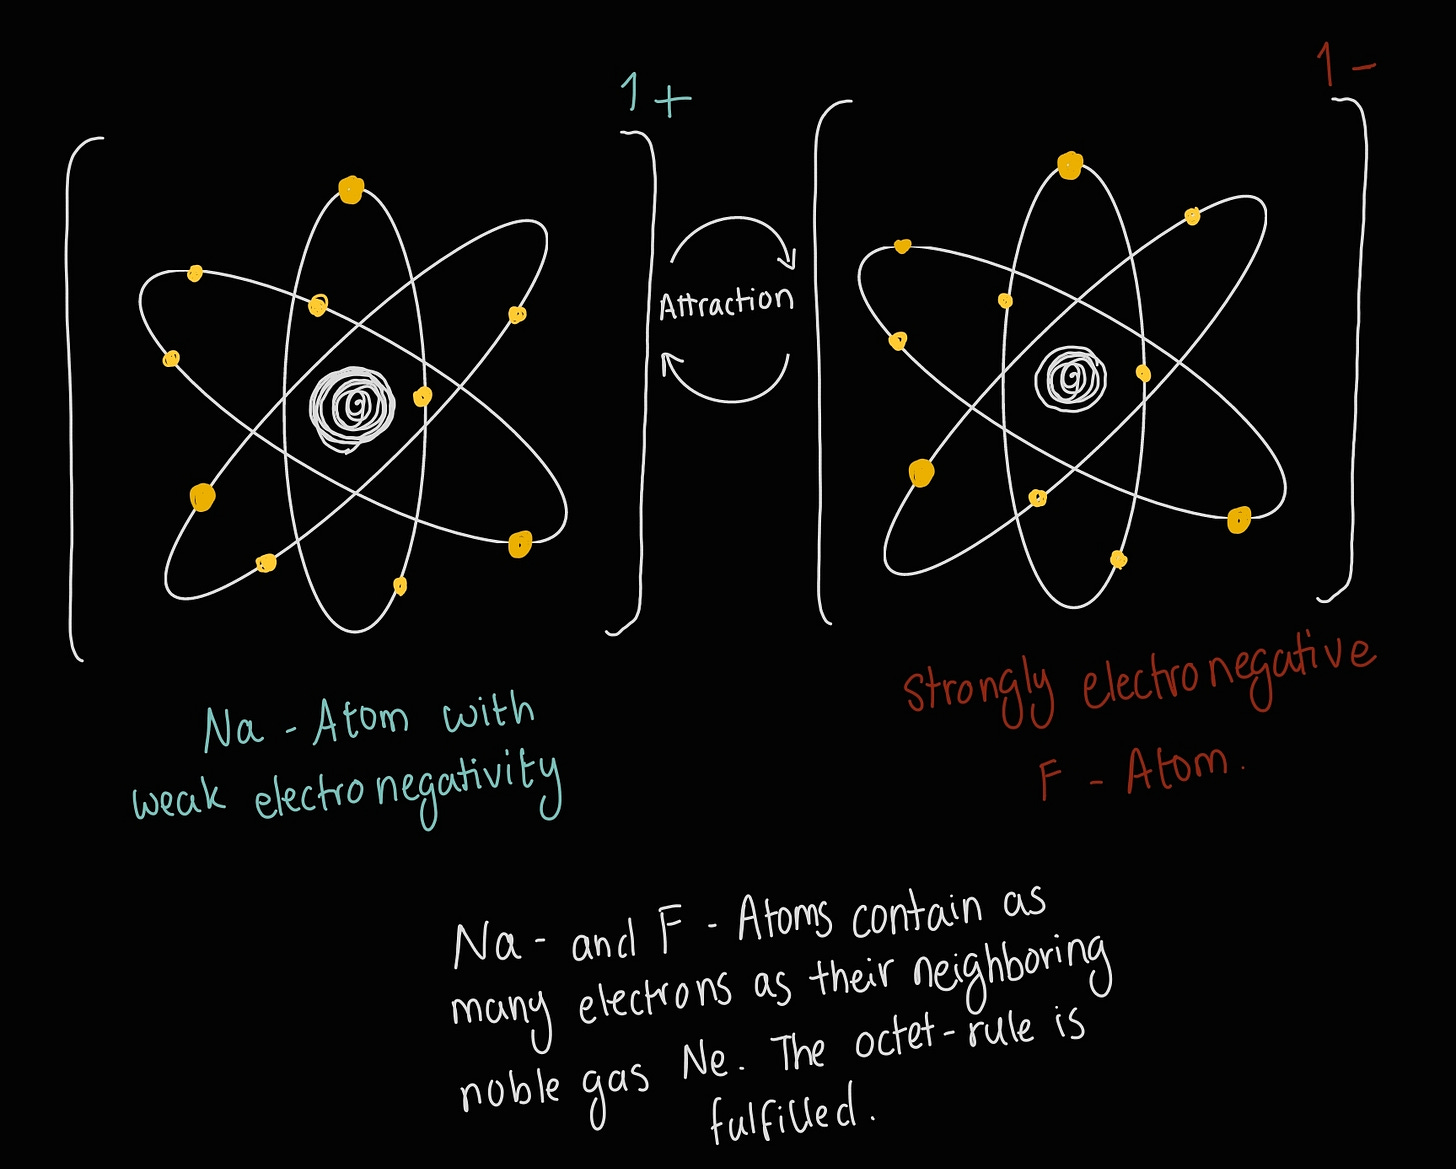 1+
1-
Attraction
Na - Atom with
weak electronegativity
Strongly electronegative
F - Atom.
Na- and F - Atoms contain as
many electrons as their neighboring
noble gas Ne. The octet-rule is
fulfilled.